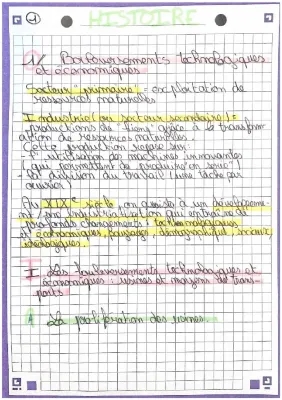 1
HISTOIRE
1/ Bouleversements technologiques
et économiques
Secteur "primaire" = exploitation de
ressources naturelles
Industrie (ou secteur secondaire) =
productions de biens grâce à la transform
ation de ressources naturelles.
Cette production repose sur:
- l'utilisation des machines innovantes
(qui permettent de produire en série)
- la division du travail (une tâche par
ouvrier)
Au XIXe siècle, on assiste à un développeme
nt / une industrialisation qui entraîne de
profonds changements: technologiques
et économiques, paysages, démographiques, sociaux,
idéologiques.
I Les bouleversements technologiques et
économiques: usines et moyens de trans-
ports
A La prolifération des usines.